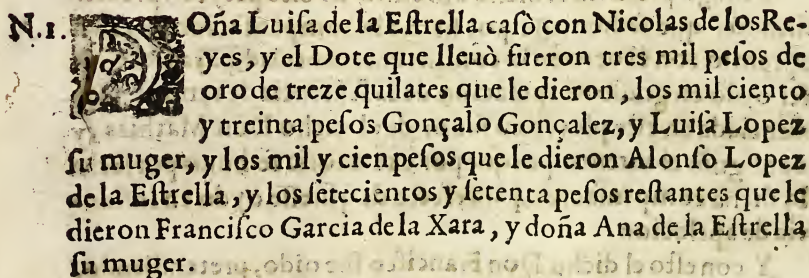 N.1. DOña Luiſa de la Eſtrella caſò con Nicolas de los Re-
yes, y el Dote que lleuò fueron tres mil peſos de
oro de treze quilates que le dieron, los mil ciento
y treinta peſos Gonçalo Gonçalez, y Luiſa Lopez
ſu muger, y los mil y cien peſos que le dieron Alonſo Lopez
de la Eſtrella, y los ſetecientos y ſetenta peſos reſtantes que le
dieron Franciſco Garcia de la Xara, y doña Ana de la Eſtrella
ſu muger.